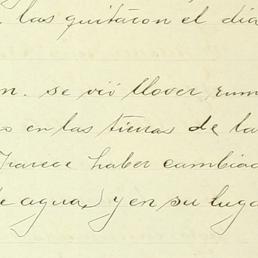 las quitaron el día
n. se vió llover, rum
o en las tierras de la
Parece haber cambiad
de agua, y en su luga